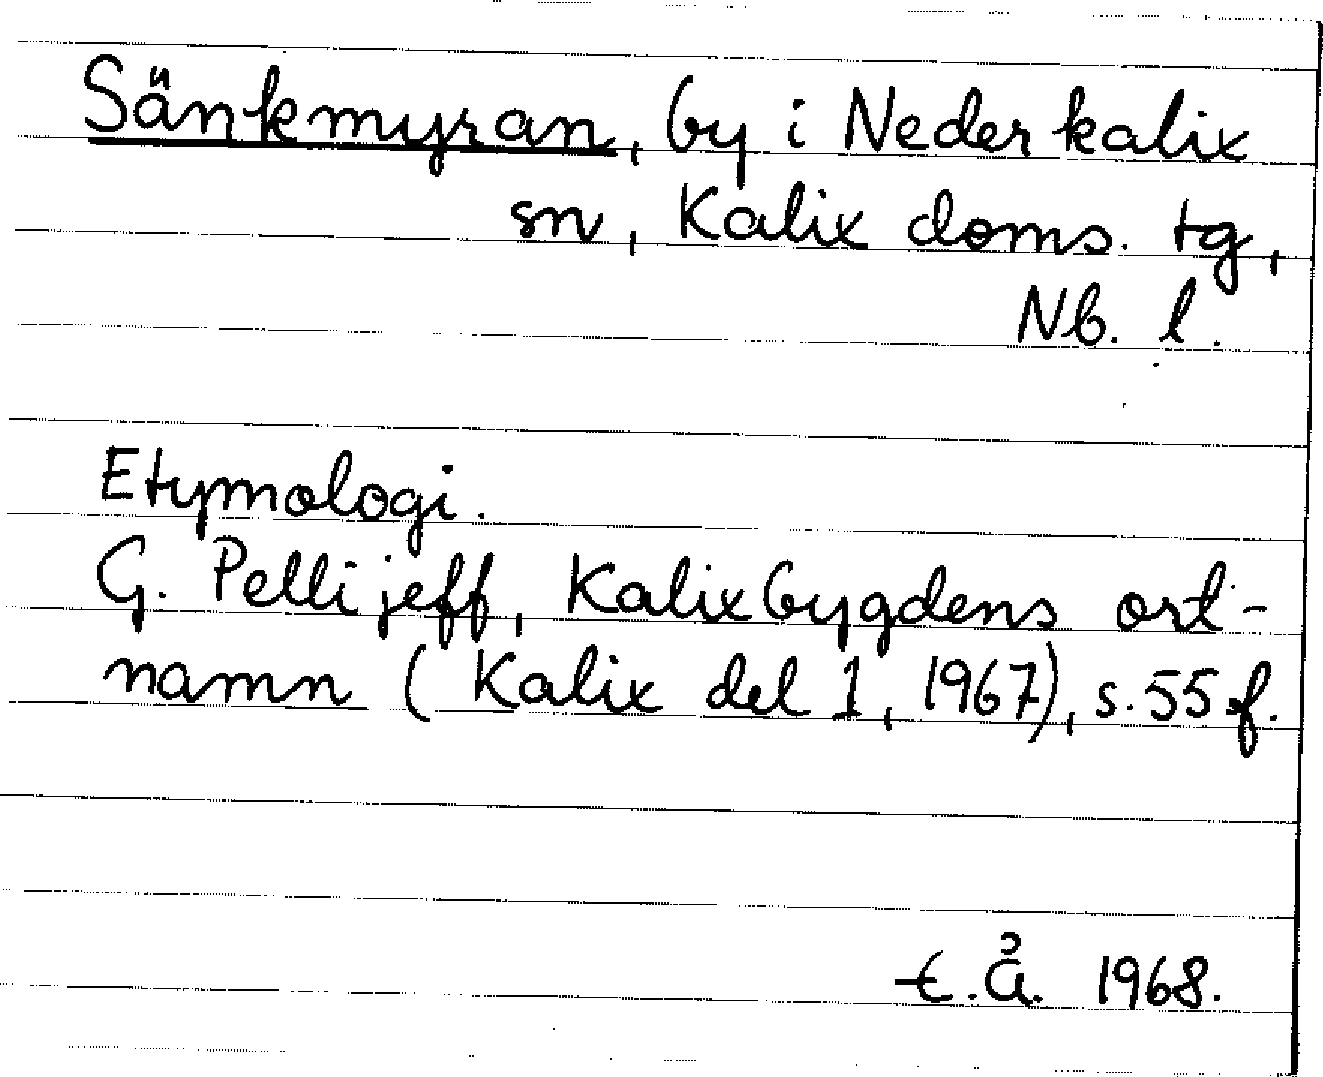 Sänkmyran, by i Nederkalix
sn, Kalix doms. tg,
Nb. l.
Etymologi.
G. Pellijeff, Kalixbygdens ort-
namn (Kalix del 1, 1967), s. 55 f.
E.Å. 1968.